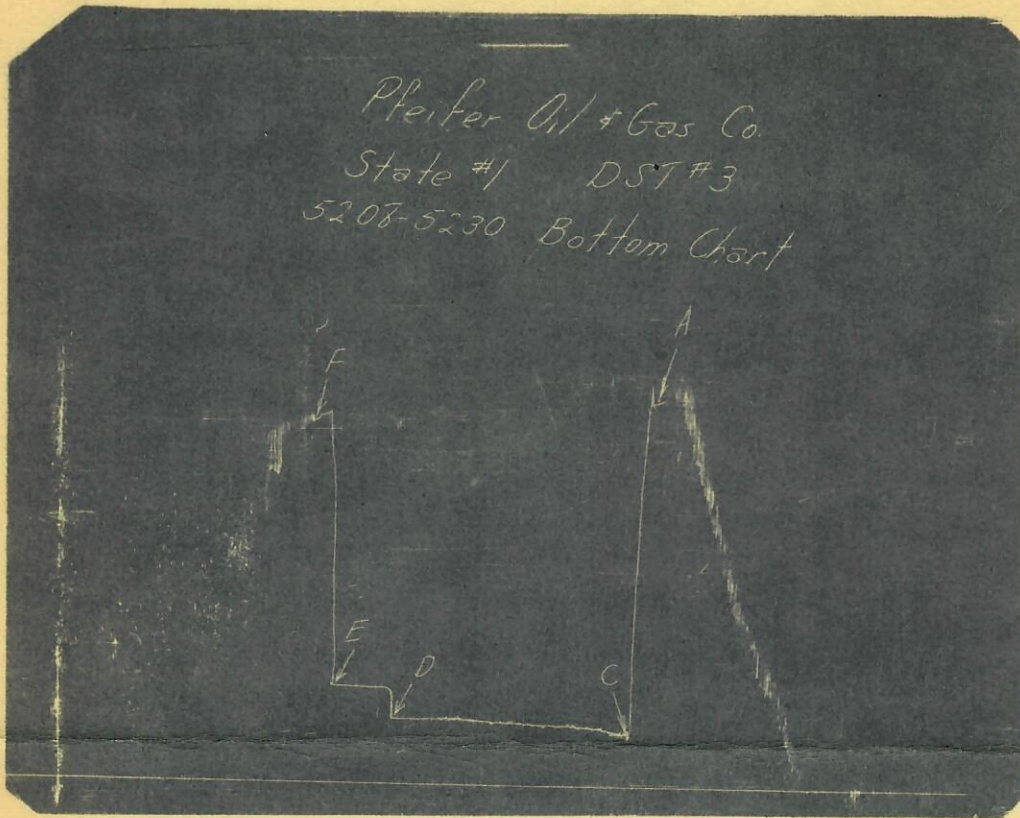 Pfeifer Oil & Gas Co.
State #1 DST #3
5208-5230 Bottom Chart
A
F
E
D
C